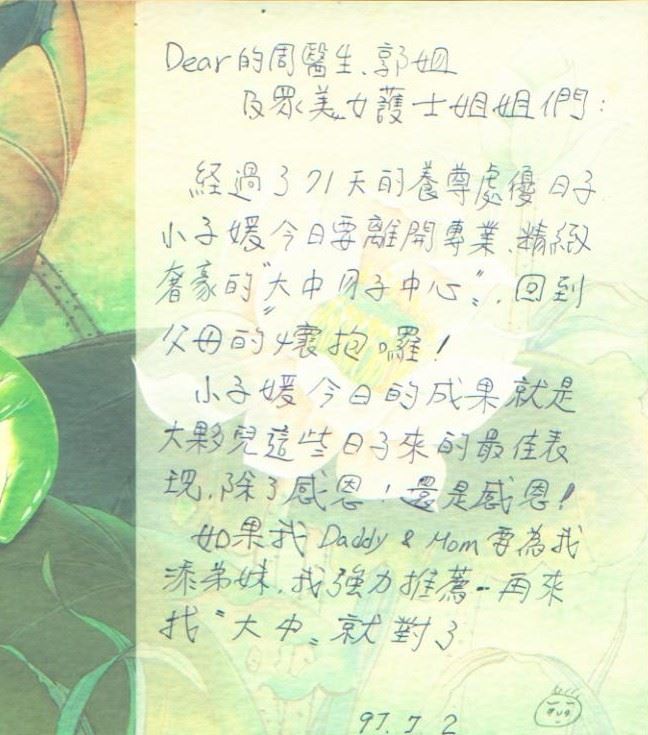 Dear的周醫生、郭姐
及眾美女護士姐姐們：
經過了71天的養尊處優日子
小子媛今日要離開專業、精緻
奢豪的〝大中月子中心〞，回到
父母的懷抱囉！
小子媛今日的成果就是
大夥兒這些日子來的最佳表
現，除了感恩！還是感恩！
如果我Daddy & Mom要為我
添弟妹，我強力推薦--再來
找〝大中〞就對了
97.7.2